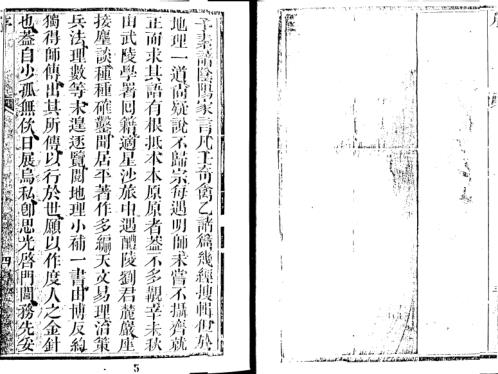 予素諳陰陽家言凡壬奇禽乙諸篇幾經搜輯但於
地理一道尚疑說不歸宗每遇明師未嘗不攝齊就
正而求其語有根柢本本原原者葢不多觀辛未秋
由武陵學署回籍適星沙旅中遇醴陵劉君麓嚴座
接塵談種種確鑿間居平著作多編天文易理治策
兵法理數等未遑逐覽閱地理小補一書由博反約
獨得師傳出其所傳以行於世願以作度人之金針
也葢自少孤無依日展烏私卽思光啓門閭務先安
序
四
5